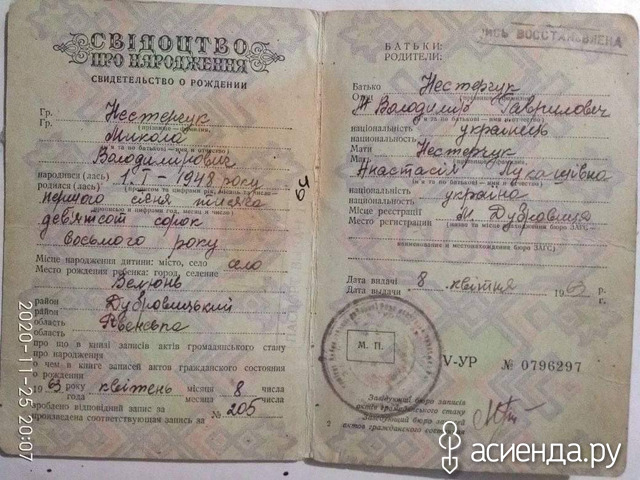 СВІДОЦТВО
ПРО НАРОДЖЕННЯ
СВИДЕТЕЛЬСТВО О РОЖДЕНИИ
Гр. Нестерчук
Гр.
Микола
Володимирович
народився (лась) 1. I – 1948 року
родился (лась)
першого січня тисяча
девятсот сорок
восьмого року
Місце народження дитини: місто, село село
Место рождения ребенка: город, селение
Велюнь
район Дубровицький
район
область Рвенська
область
про що в книзі записів актів громадянського стану
про народження
о чем в книге записей актов гражданского состояния
о рождении
1963 року квітень місяця 8 числа
года месяца числа
зроблено відповідний запис за № 205
произведена соответствующая запись за
64
БАТЬКИ:
РОДИТЕЛИ:
ВОССТАНОВЛЕНА
Батько Нестерчук
Володимир Гаврилович
національність українець
национальность
Мати Нестерчук
Анастасія Лукашівна
національність україна
национальность
Місце реєстрації м. Дубровиця
Место регистрации
наименование и местонахождение бюро ЗАГС
Дата видачі 8 квітня 1963 р.
Дата выдачи г.
М. П.
V-УР № 0796297
Завідуючий бюро записів
актів громадянського стану
Заведующий бюро записей
актов гражданского состояния
2
2020-11-25 20:07
асиенда.ру